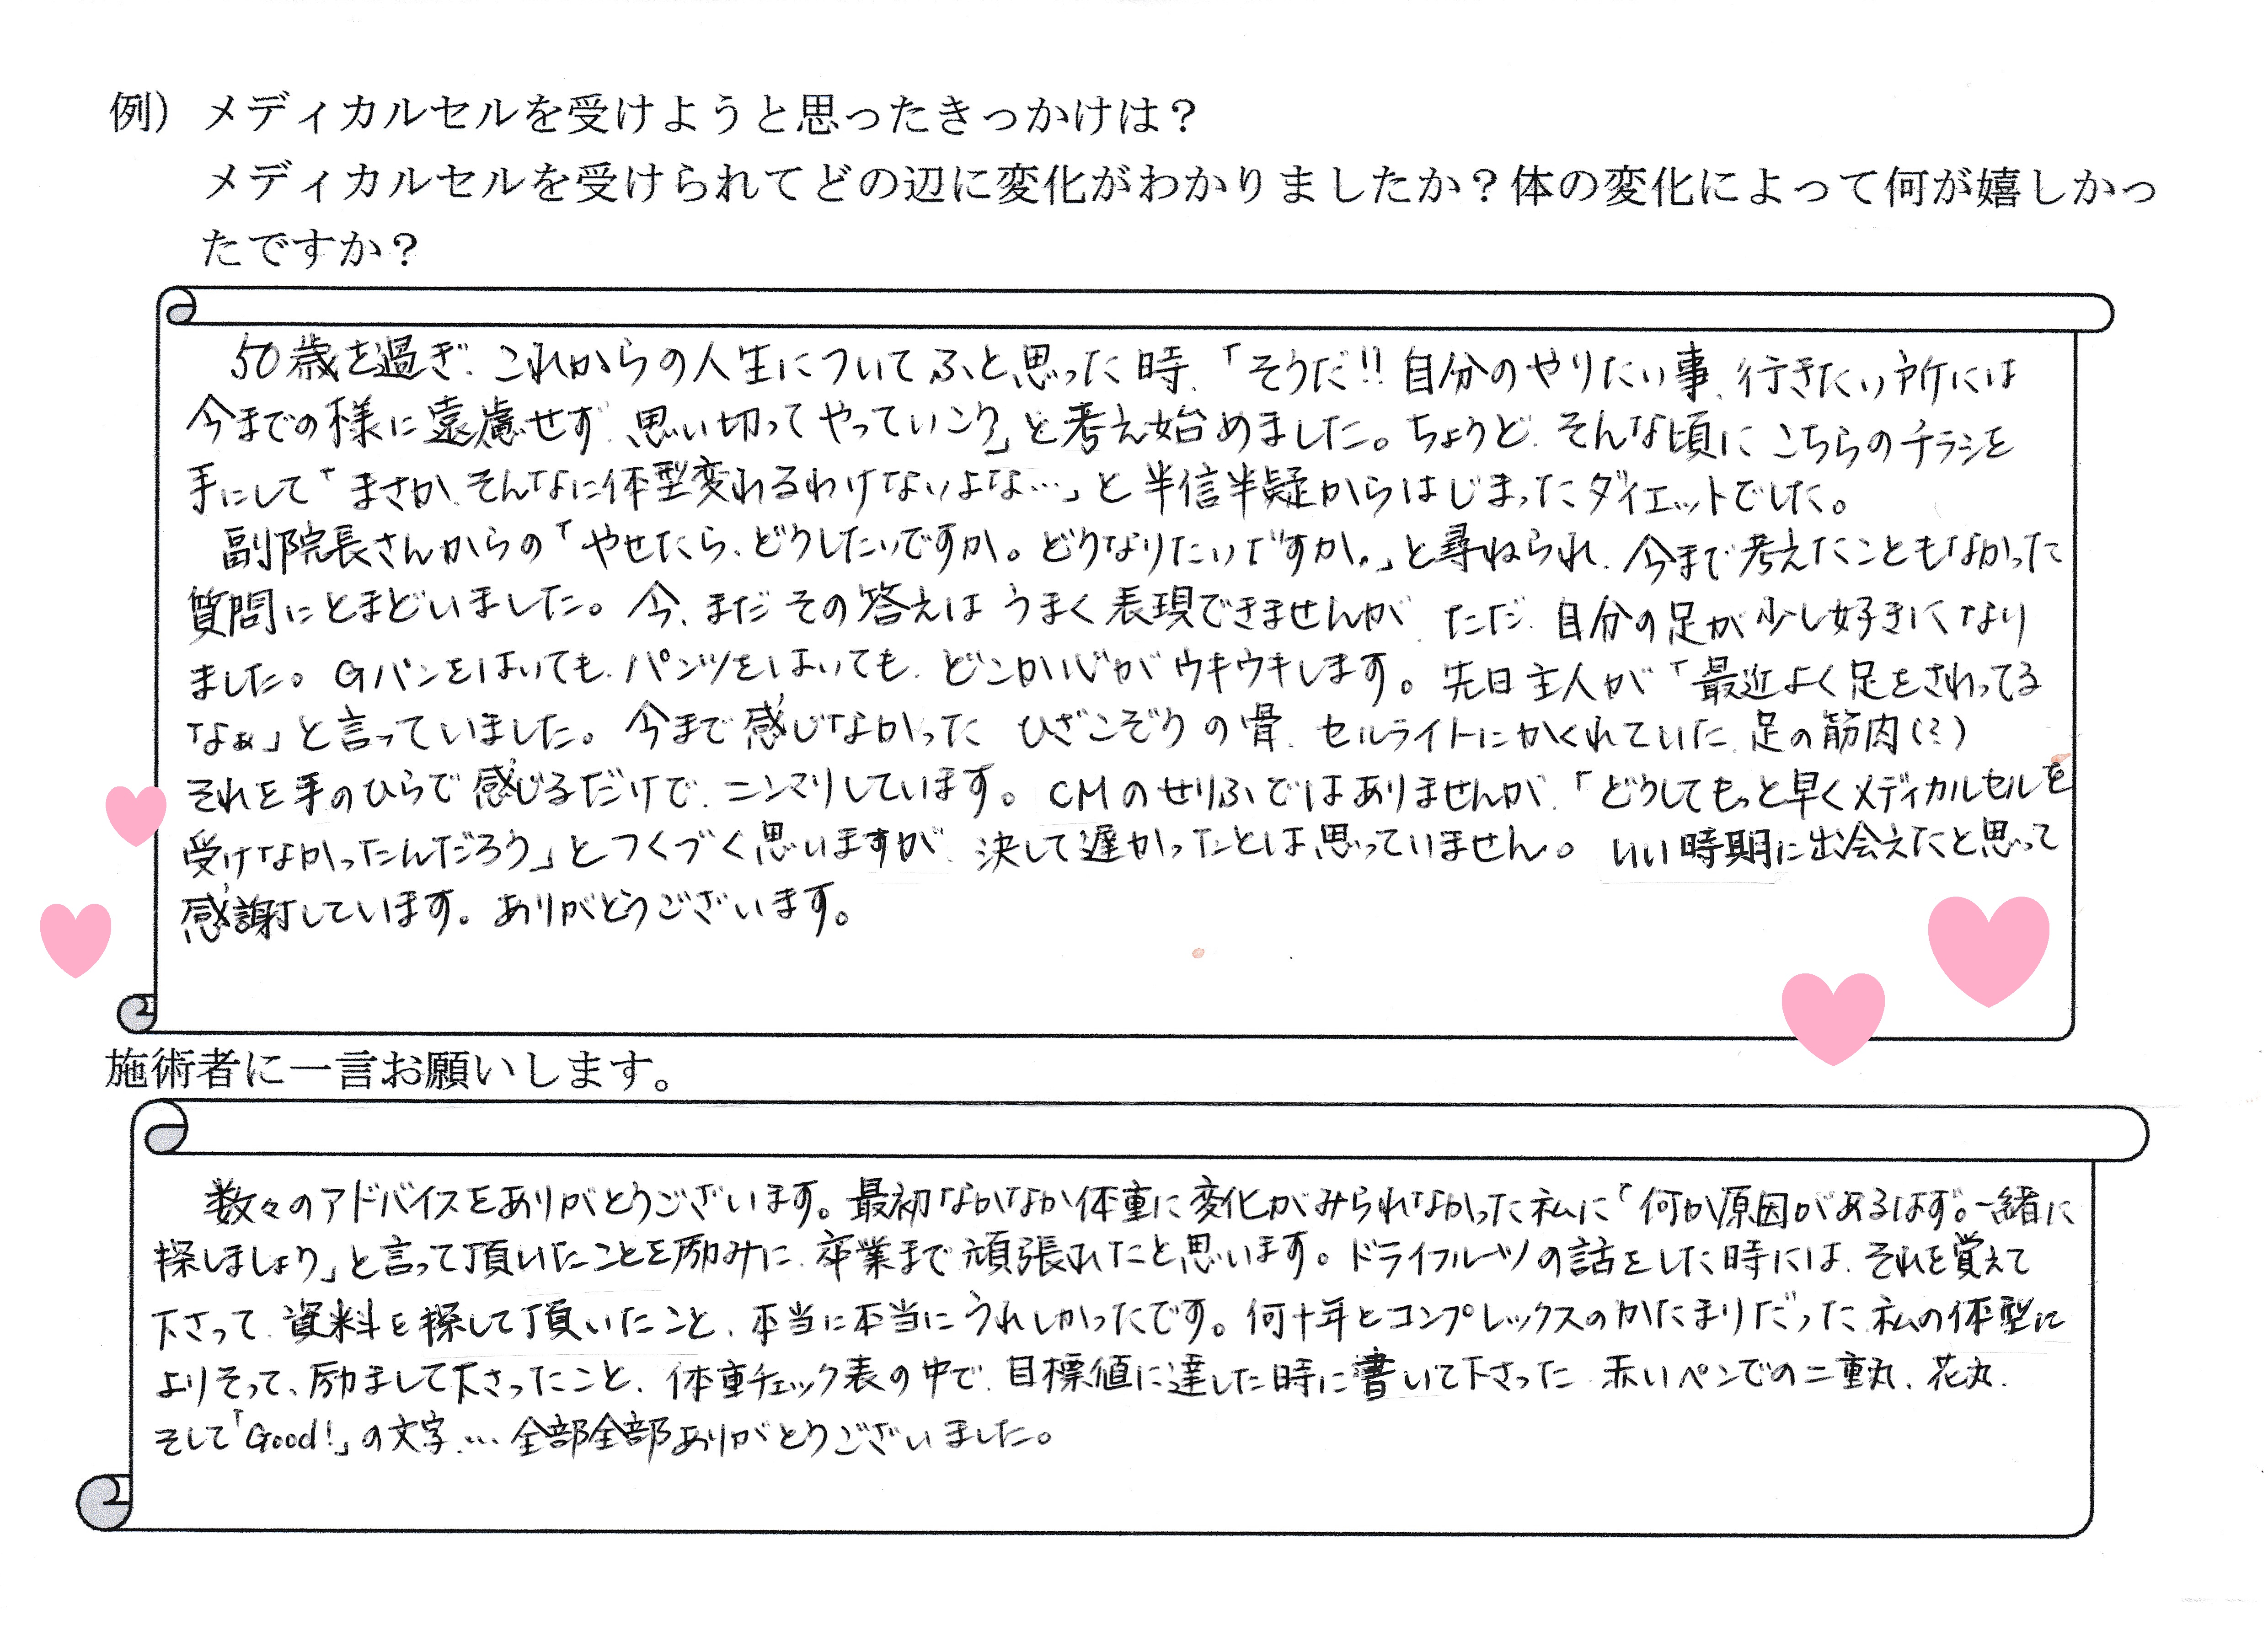 例）メディカルセルを受けようと思ったきっかけは？
メディカルセルを受けられてどの辺に変化がわかりましたか？体の変化によって何が嬉しかっ
たですか？
50歳を過ぎ、これからの人生についてふと思った時、「そうだ!!自分のやりたい事、行きたい所には
今までの様に遠慮せず、思い切ってやっていこう」と考え始めました。ちょうど、そんな頃にこちらのチラシを
手にして「まさか、そんなに体型変われるわけないよな…」と半信半疑からはじまったダイエットでした。
副院長さんからの「やせたら、どうしたいですか。どうなりたいですか。」と尋ねられ、今まで考えたこともなかった
質問にとまどいました。今、まだその答えはうまく表現できませんが、ただ、自分の足が少し好きになり
ました。Gパンをはいても、パンツをはいても、どこか心がウキウキします。先日主人が「最近よく足をさわってる
なぁ」と言っていました。今まで感じなかった ひざこぞうの骨、セルライトにかくれていた、足の筋肉(ミ)
それを手のひらで感じるだけで、ニンマリしています。CMのせりふではありませんが、「どうしてもっと早くメディカルセルを
受けなかったんだろう」とつくづく思いますが、決して遅かったとは思っていません。いい時期に出会えたと思って
感謝しています。ありがとうございます。
施術者に一言お願いします。
数々のアドバイスをありがとうございます。最初なかなか体重に変化がみられなかった私に「何か原因があるはず。一緒に
探しましょう」と言って頂いたことを励みに、卒業まで頑張れたと思います。ドライフルーツの話をした時には、それを覚えて
下さって、資料を探して頂いたこと、本当に本当にうれしかったです。何十年とコンプレックスのかたまりだった、私の体型に
よりそって、励まして下さったこと、体重チェック表の中で、目標値に達した時に書いて下さった 赤いペンでの二重丸、花丸、
そして「Good!」の文字…全部全部ありがとうございました。